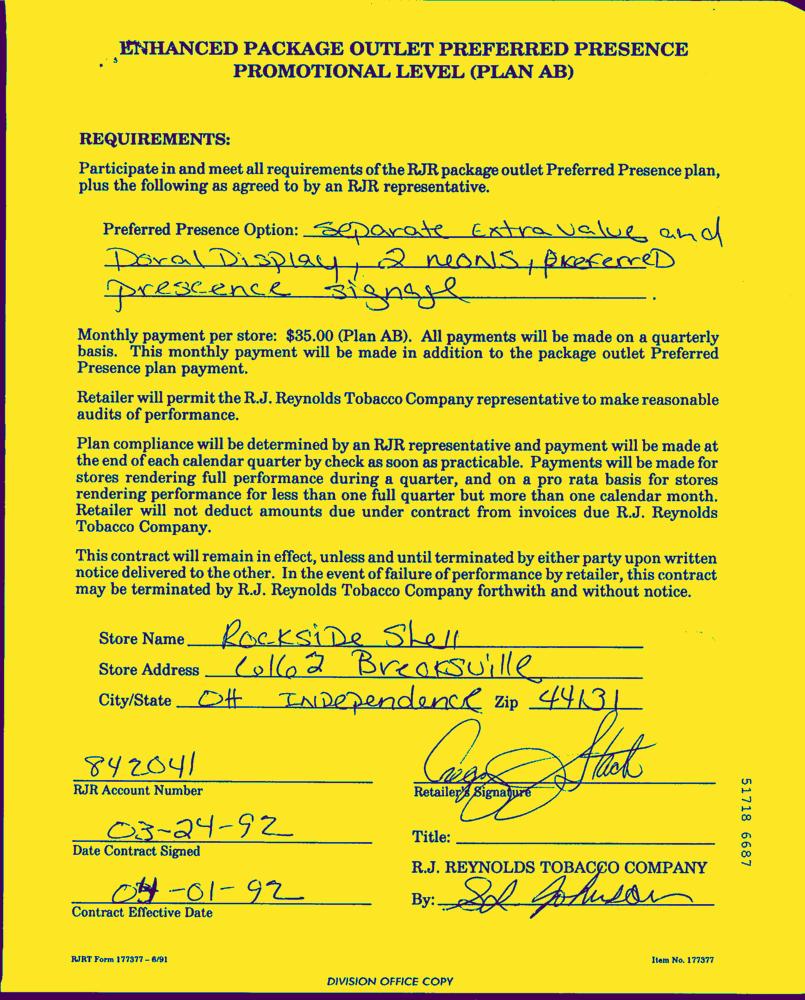 ENHANCED PACKAGE OUTLET PREFERRED PRESENCE
PROMOTIONAL LEVEL (PLAN AB)
REQUIREMENTS:
Participate in and meet all requirements of the RJR package outlet Preferred Presence plan,
plus the following as agreed to by an RJR representative.
Preferred Presence Option: Separate Extra Value and
Doral Display, 2 neons, preferred
prescence signage.
Monthly payment per store: $35.00 (Plan AB). All payments will be made on a quarterly
basis. This monthly payment will be made in addition to the package outlet Preferred
Presence plan payment.
Retailer will permit the R.J. Reynolds Tobacco Company representative to make reasonable
audits of performance.
Plan compliance will be determined by an RJR representative and payment will be made at
the end of each calendar quarter by check as soon as practicable. Payments will be made for
stores rendering full performance during a quarter, and on a pro rata basis for stores
rendering performance for less than one full quarter but more than one calendar month.
Retailer will not deduct amounts due under contract from invoices due R.J. Reynolds
Tobacco Company.
This contract will remain in effect, unless and until terminated by either party upon written
notice delivered to the other. In the event of failure of performance by retailer, this contract
may be terminated by R.J. Reynolds Tobacco Company forthwith and without notice.
Store Name Rockside Shell
Store Address Brecksville
City/State OH Independence Zip 44131
842041
RJR Account Number
Retailer's Signature
03-24-92
Date Contract Signed
Title:
R.J. REYNOLDS TOBACCO COMPANY
04-01-92
Contract Effective Date
By: Johnson
51718 6687
RJRT Form 177377 – 6/91
Item No. 177377
DIVISION OFFICE COPY